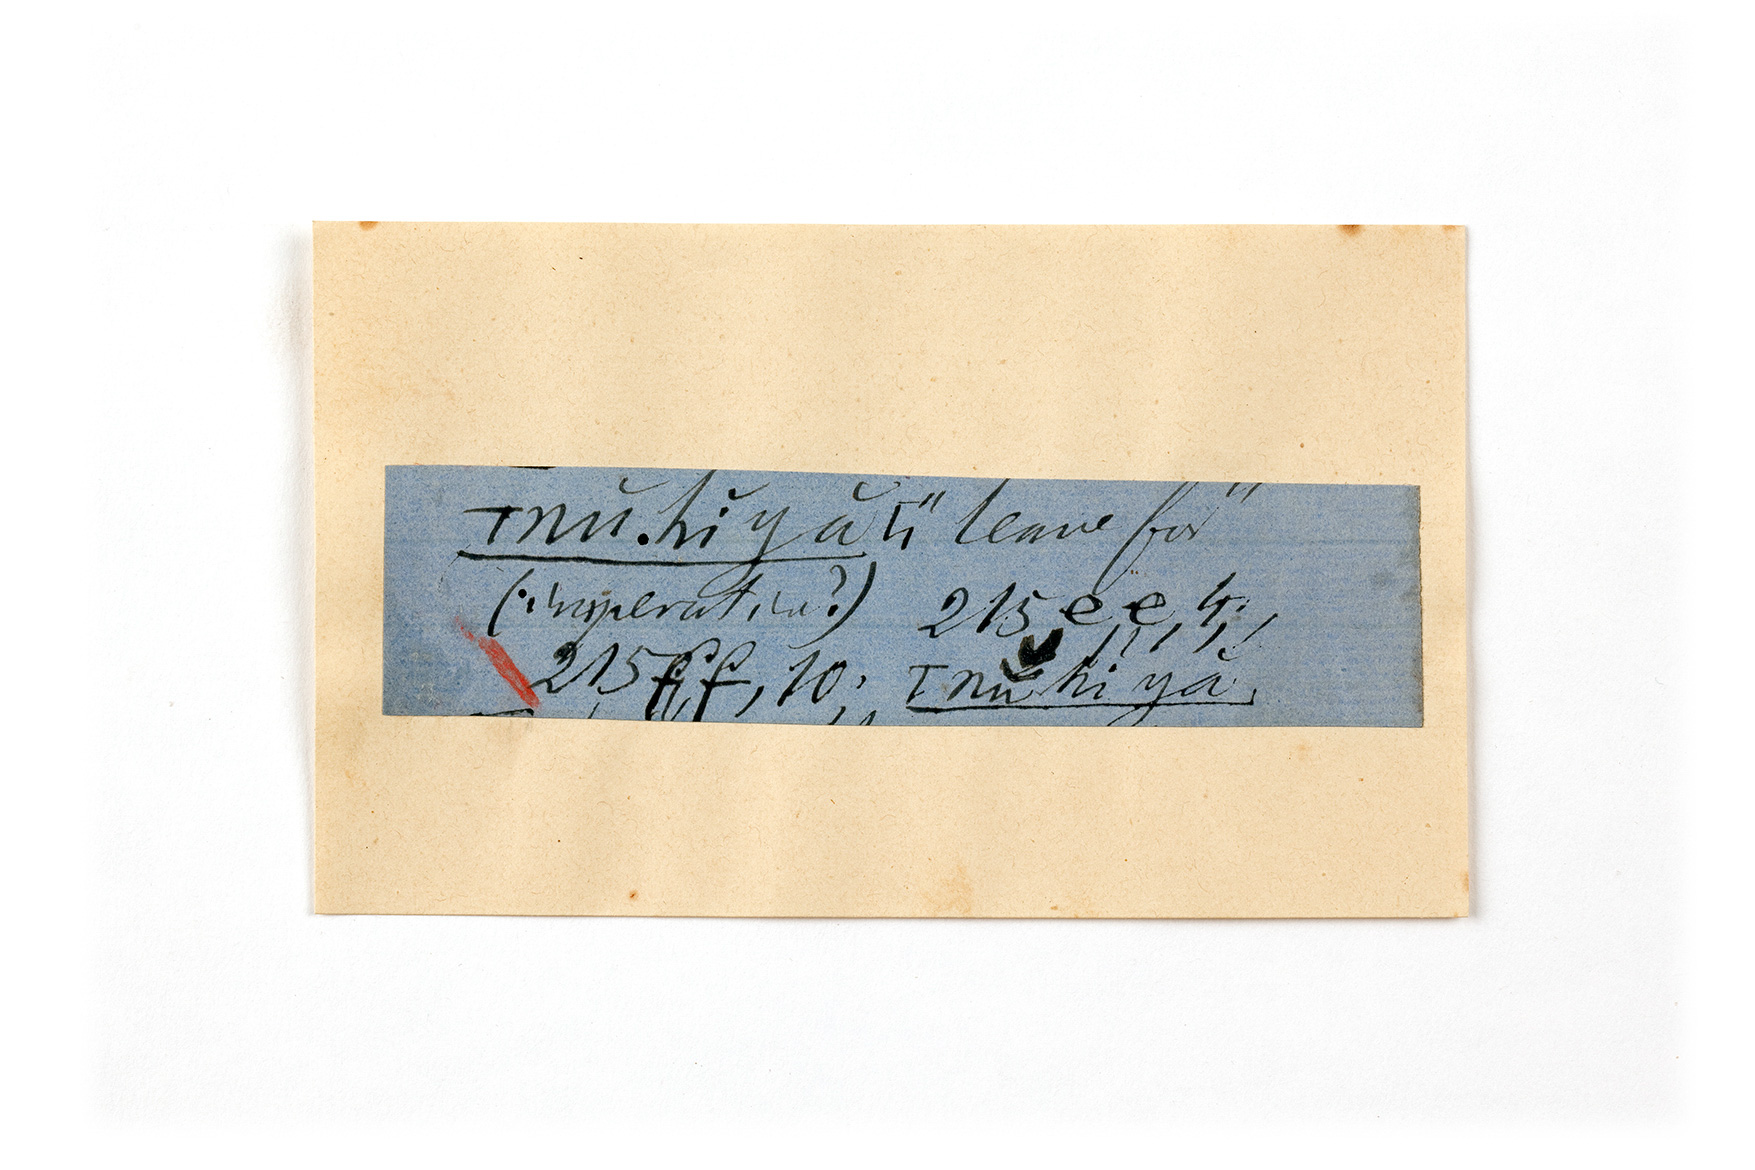 Tnŭ.hĭyă ti " leave for "
(imperative?) 215 ee, 4;
215 ff, 10; Tnŭhiyă